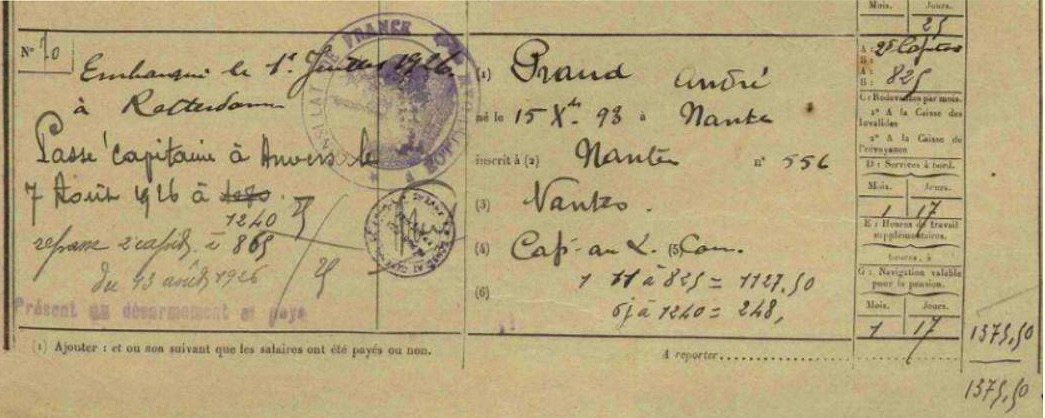 Mois. Jours.
25
N° 20
Embarqué le 1er Juillet 1926
à Rotterdam
Passé capitaine à Anvers le
7 Août 1926 à
1240
repasse 2 capit, à 865
du 13 août 1926
Présent au désarmement et payé
(1) Ajouter : et ou non suivant que les salaires ont été payés ou non.
FRANCE
(1) Praud André
né le 15 Xbre 93 à Nantes
inscrit à (2) Nantes n° 556
(3) Nantes.
(4) Cap. au L. (5) Com.
1 11 à 825 = 1127.50
(6)
6j à 1240 = 248,
A reporter
A : 2e Capitaine
B :
A :
B : 825
C : Redevances par mois.
1° A la Caisse des
Invalides
2° A la Caisse de
Prévoyance
D : Services à bord.
Mois. Jours.
1 17
E : Heures de travail
supplémentaires.
heures, à
G : Navigation valable
pour la pension.
Mois. Jours.
1 17
1375,50
1375,50